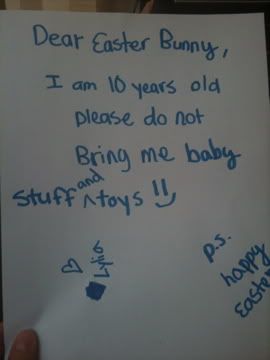 Dear Easter Bunny,
I am 10 years old
please do not
Bring me baby
stuff and toys !!
p.s.
happy
Easter